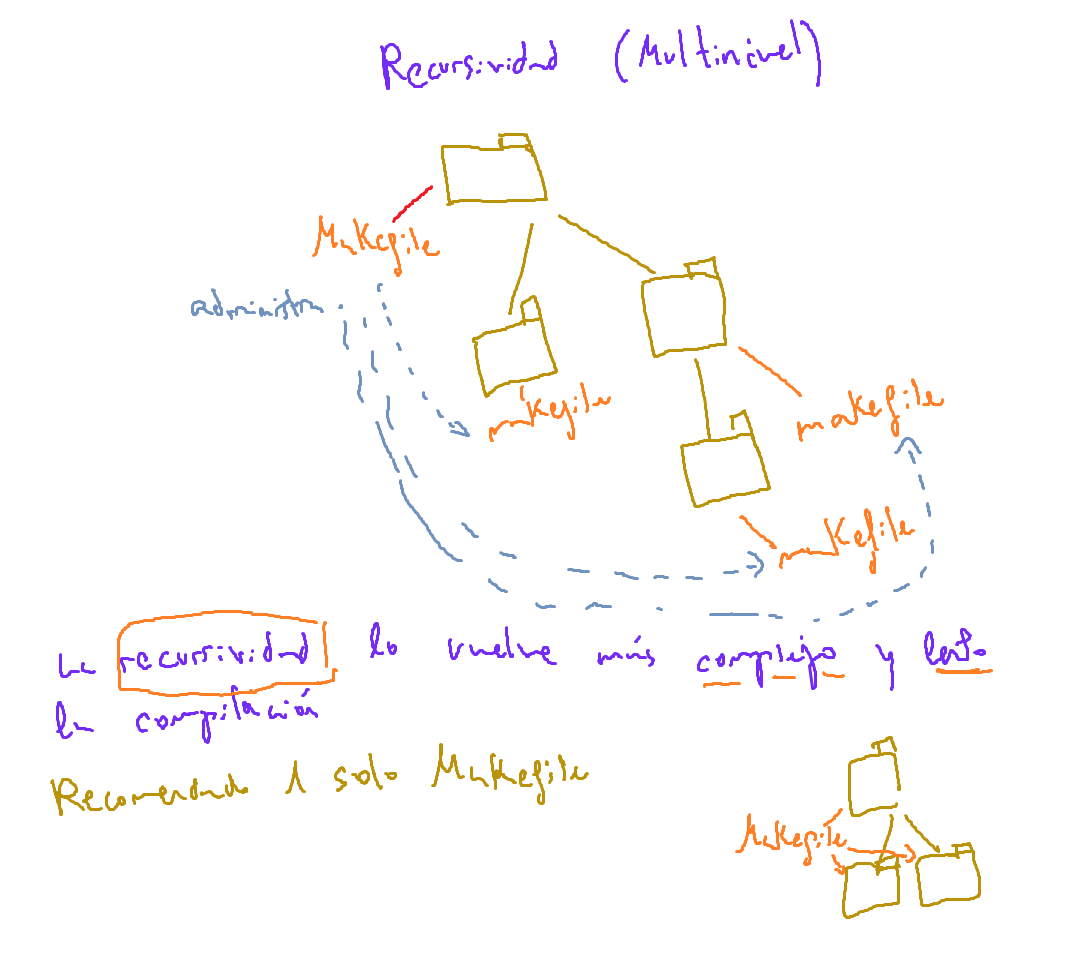 Recursividad (Multinivel)
Makefile
administra
makefile
makefile
makefile
La recursividad lo vuelve más complejo y lento
la compilación
Recomendado 1 solo Makefile
Makefile